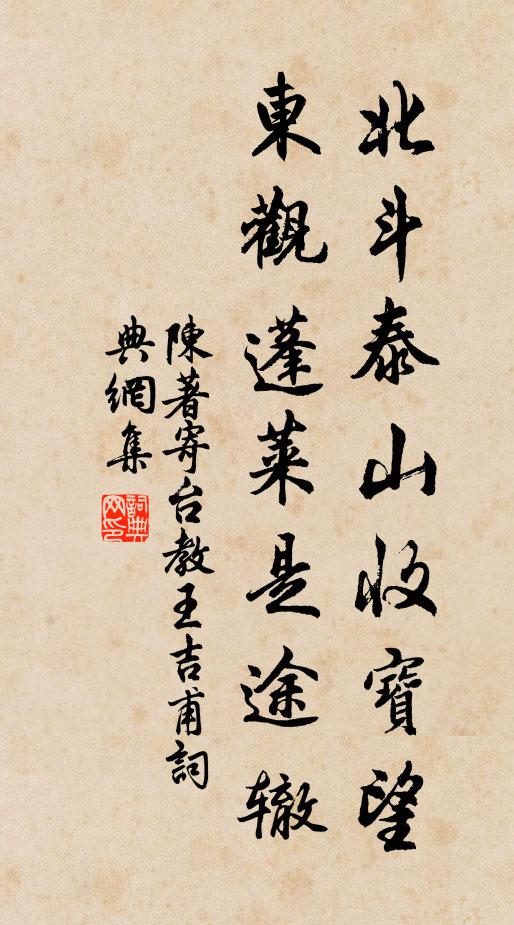 北斗泰山收寶望
東觀蓬萊是途辙
陳著寄台教王吉甫詞
典網集
詞典
网印